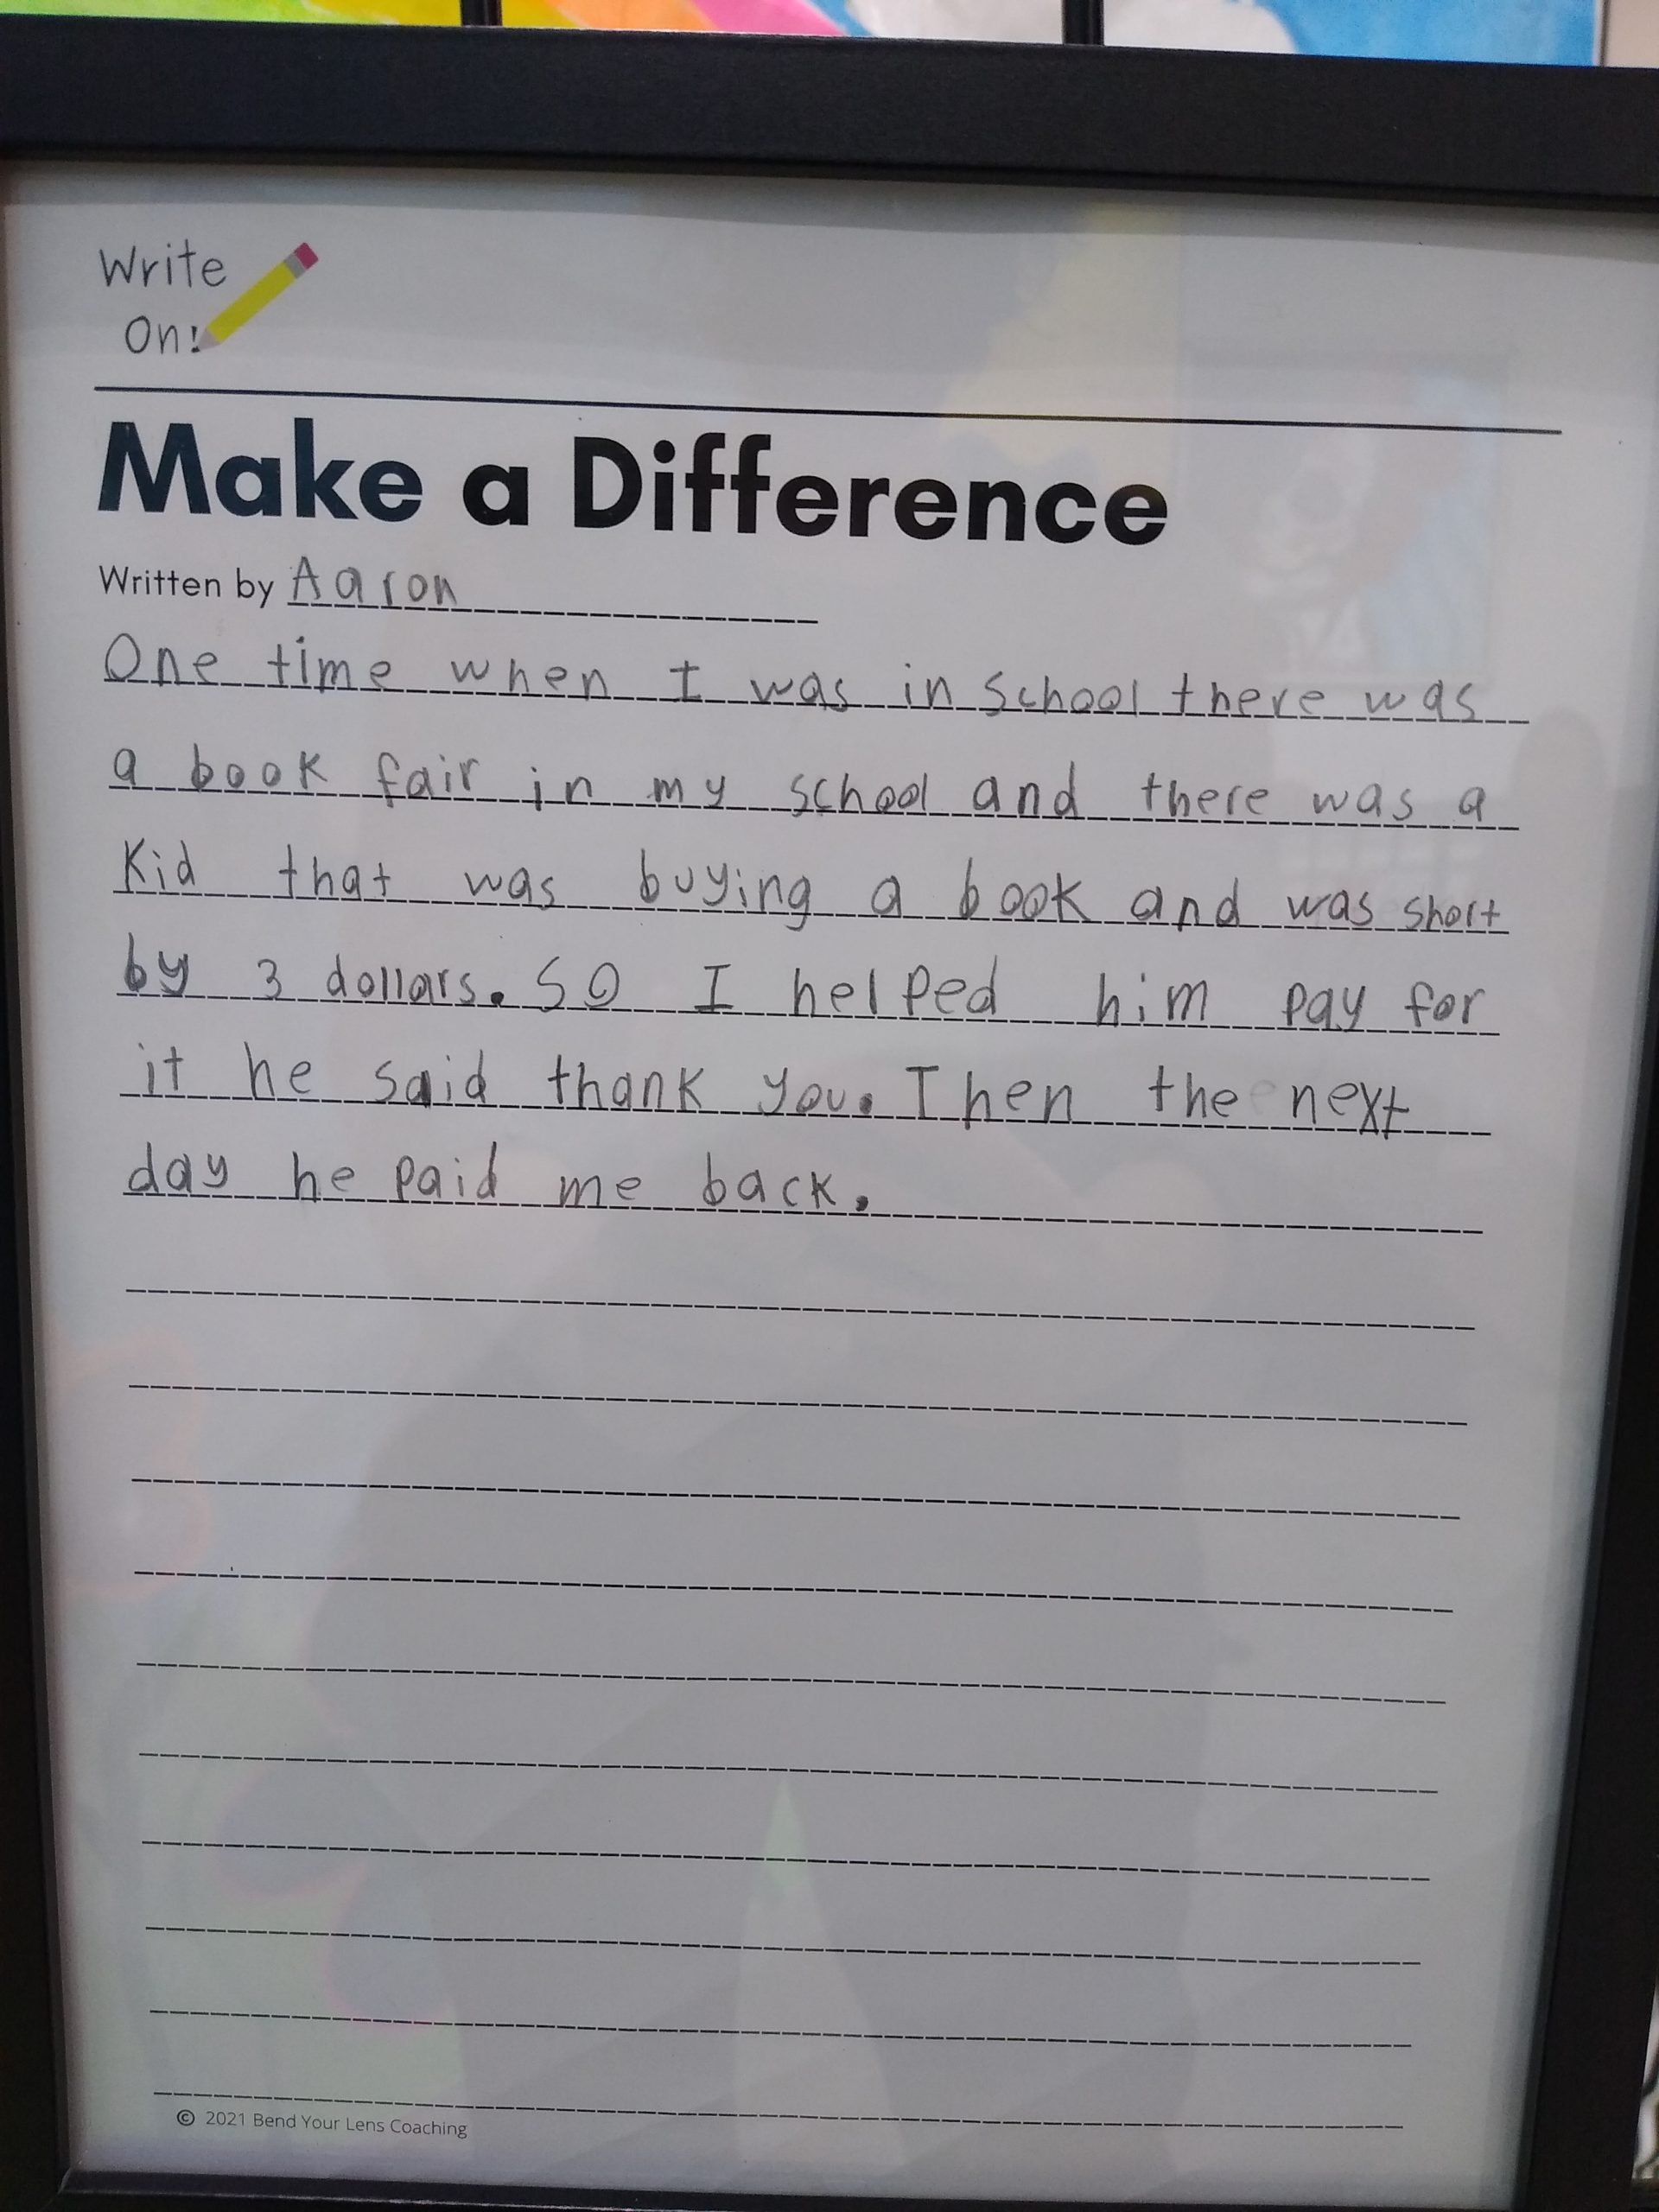 Write
On!
Make a Difference
Written by Aaron
One time when I was in school there was
a book fair in my school and there was a
Kid that was buying a book and was short
by 3 dollars. SO I helped him pay for
it he said thank you. Then the next
day he paid me back.
© 2021 Bend Your Lens Coaching